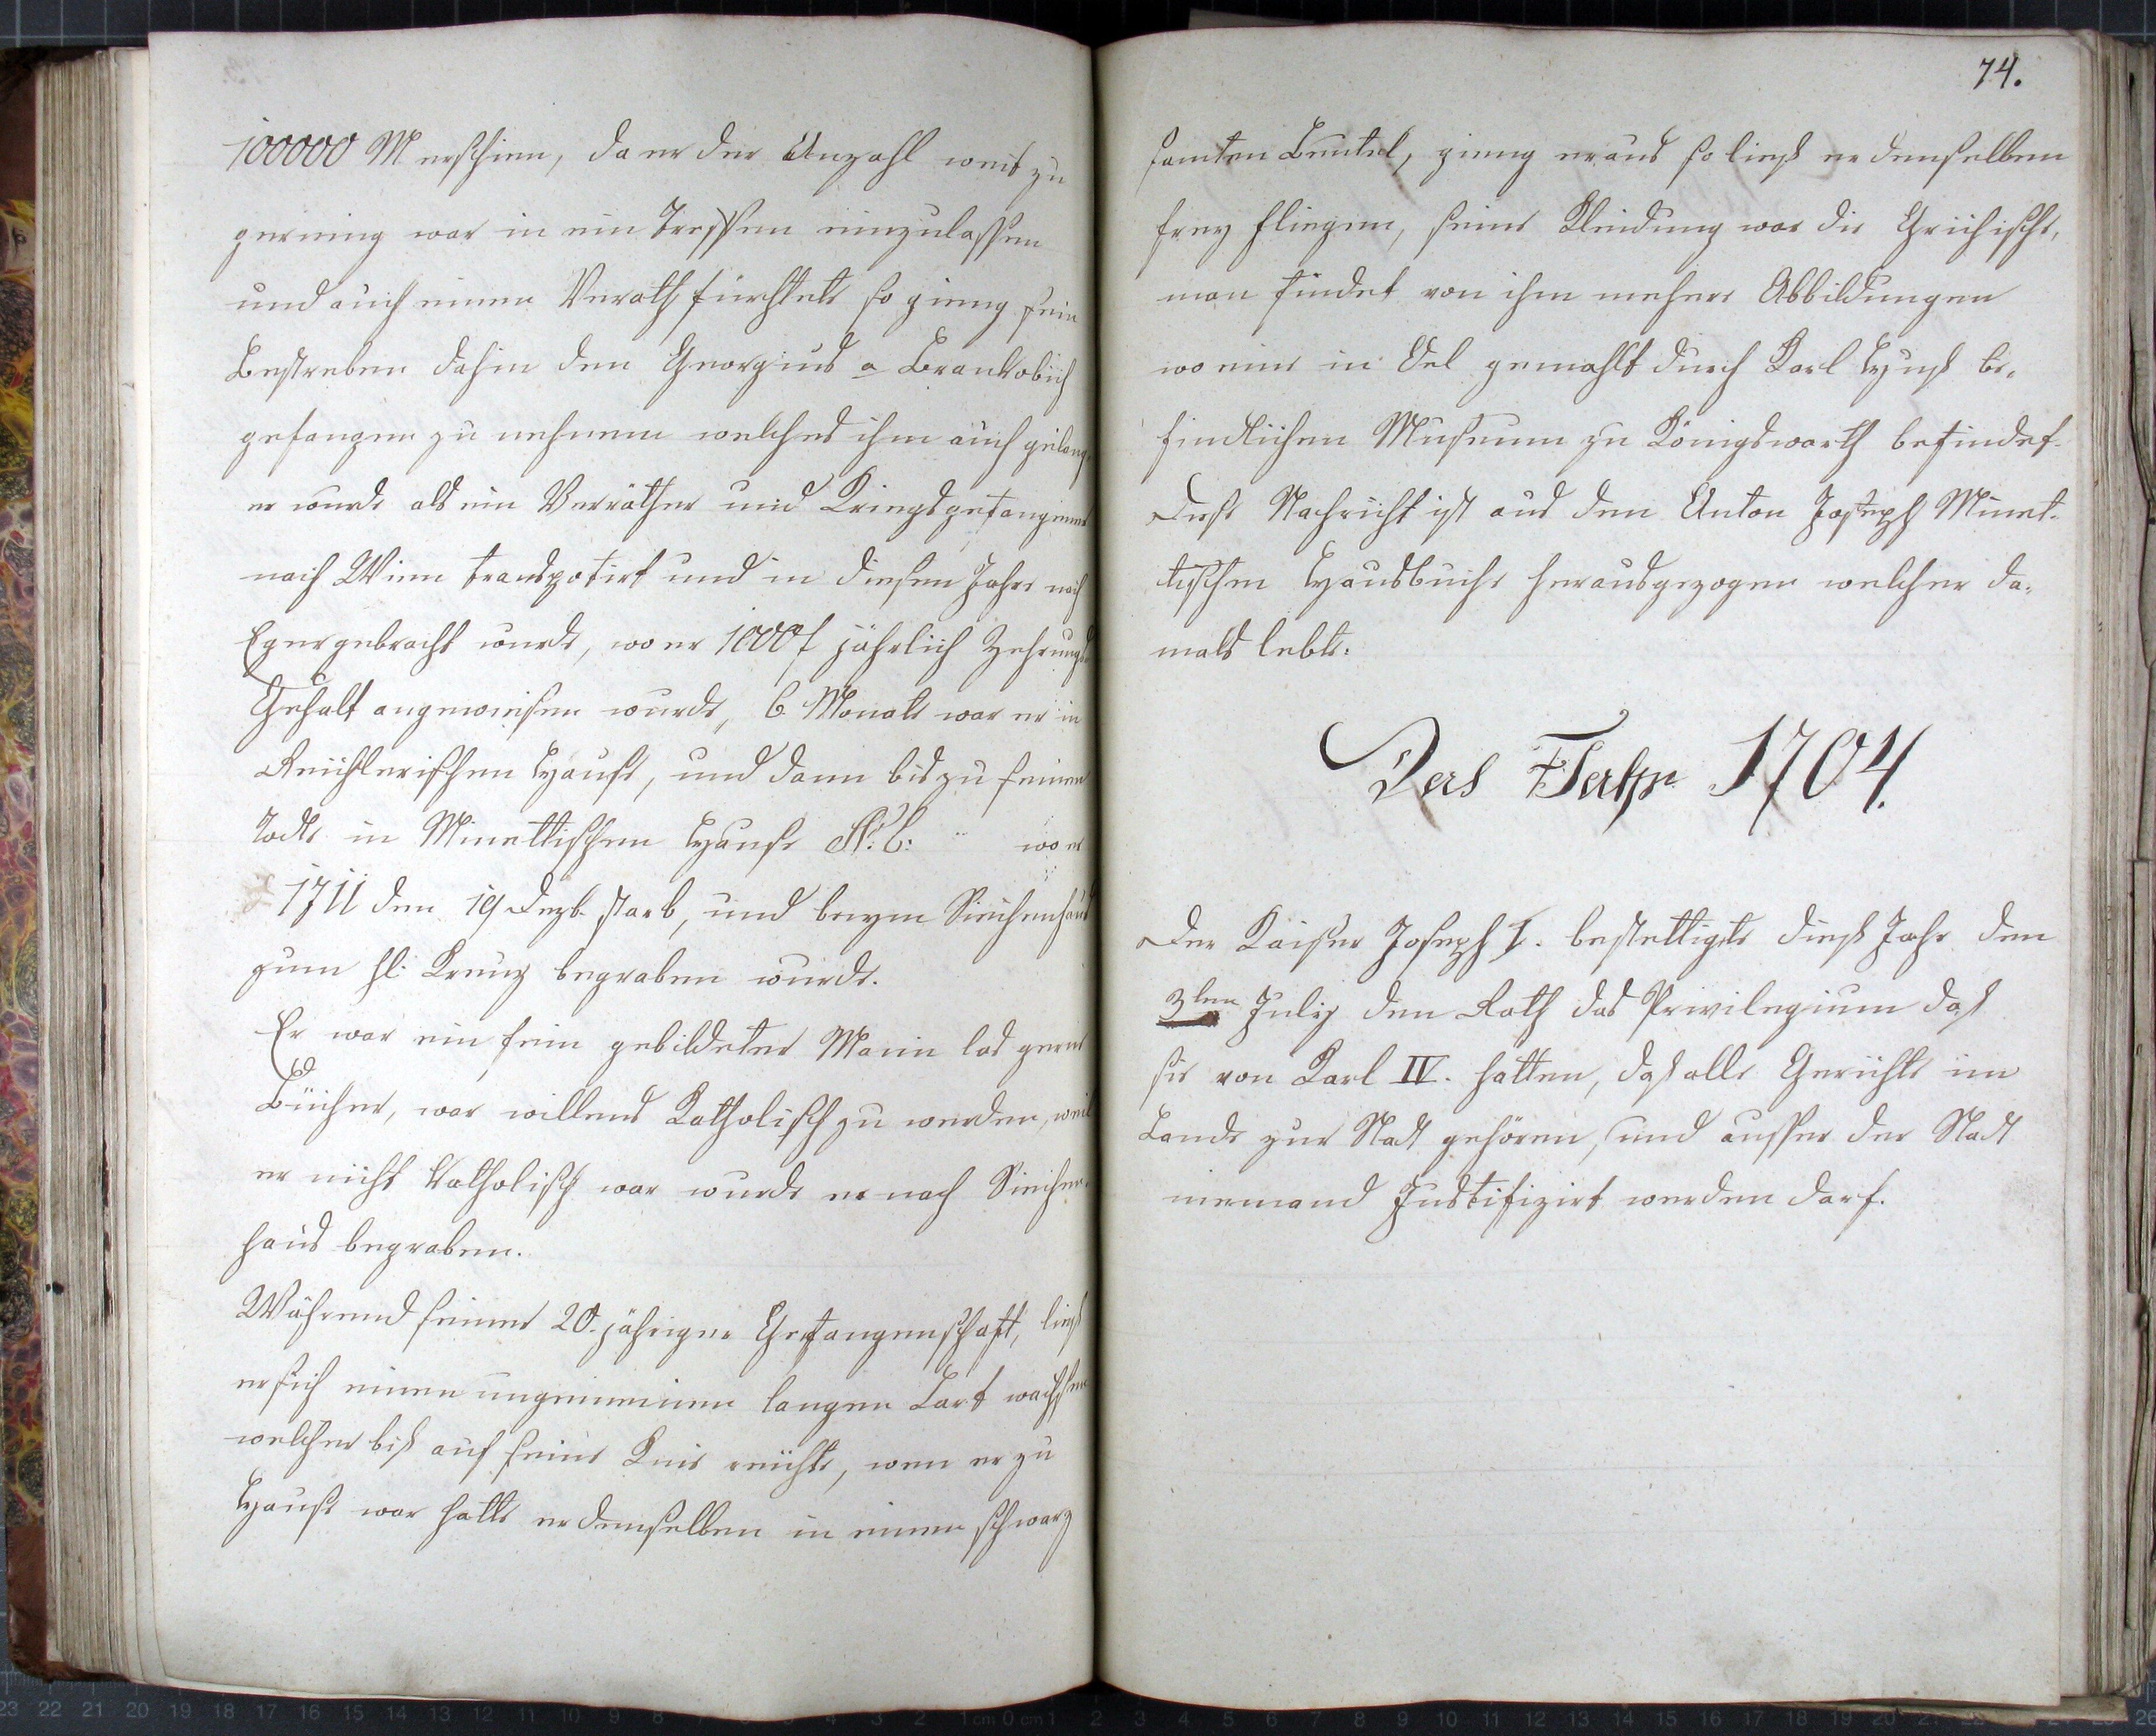 100000 M erschien, da er der Anzahl weit zu
gering war in ein Treffen einzulassen
und auch einen Verath fürchtete so gieng sein
Bestreben dahin den Georgius a Brankobich
gefangen zu nehmen welches ihm auch gelang
er wurde als ein Verräther und Kriegsgefangener
nach Wien transpotirt und in diesem Jahre nach
Eger gebracht wurde, wo er 1000 f jährlich Zehrungs
Gehalt angewiesen wurde, 6 Monate war er in
Reichlerischen Hause, und dann bis zu seinen
Tode in Minettischen Hause N: C: wo er
1711 den 19 Dezb. starb, und beym Siechenhaus
zum hl: Kreuz begraben wurde.
Er war ein fein gebildeter Mann las gerne
Bücher, war willens Katholisch zu werden, weil
er nicht Katholisch war wurde er nach Siechen
haus begraben.
Während seiner 20. jährigen Gefangenschaft, ließ
er sich einen ungemeinen langen Bart wachsen
welcher biß auf seine Knie reichte, wen er zu
Hause war hatte er denselben in einen schwarz
74.
samten Beutel, gieng er aus so ließ er denselben
frey fliegen, seine Kleidung war die Grichische,
man findet von ihm mehere Abbildungen
wo eine in Oel gemahlt durch Karl Huß be-
findlichen Museum zu Königswarth befindet.
Diese Nachricht ist aus den Anton Joseph Minet-
tischen Hausbuche herausgezogen welcher da-
mals lebte.
Das Jahr 1704.
Der Kaiser Joseph I. bestettigte dieß Jahr den
3ten July den Rath das Privilegium daß
sie von Karl IV. hatten, daß alle Gerichte im
Lande zur Stadt gehören, und ausser der Stadt
niemand Justifizirt werden darf.